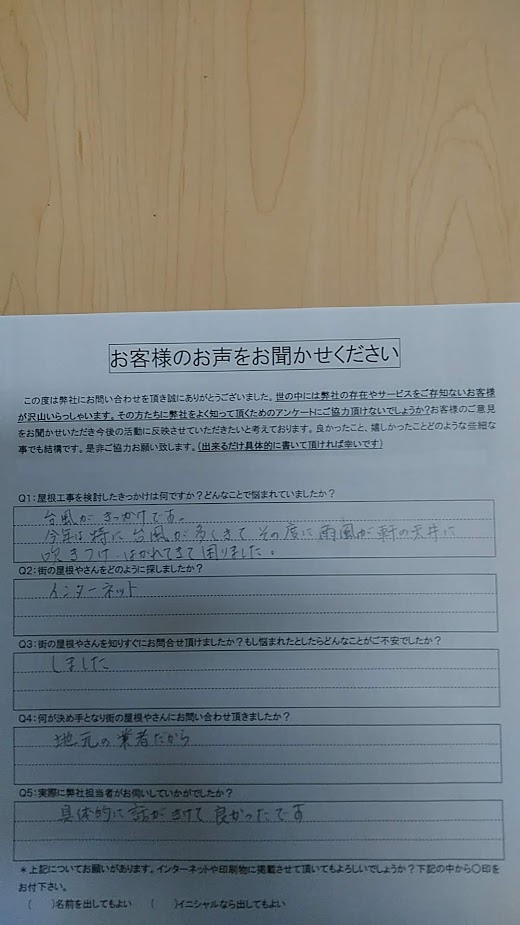 お客様のお声をお聞かせください
この度は弊社にお問い合わせを頂き誠にありがとうございました。世の中には弊社の存在やサービスをご存知ないお客様
が沢山いらっしゃいます。その方たちに弊社をよく知って頂くためのアンケートにご協力頂けないでしょうか?お客様のご意見
をお聞かせいただき今後の活動に反映させていただきたいと考えております。良かったこと、嬉しかったことどのような些細な
事でも結構です。是非ご協力お願い致します。(出来るだけ具体的に書いて頂ければ幸いです)
Q1:屋根工事を検討したきっかけは何ですか?どんなことで悩まれていましたか?
台風がきっかけです。
今年は特に台風が多くきてその度に雨風が軒の天井に
吹きつけ はがれてきて困りました。
Q2:街の屋根やさんをどのように探しましたか?
インターネット
Q3:街の屋根やさんを知りすぐにお問合せ頂けましたか?もし悩まれたとしたらどんなことがご不安でしたか?
しました
Q4:何が決め手となり街の屋根やさんにお問い合わせ頂きましたか?
地元の業者だから
Q5:実際に弊社担当者がお伺いしていかがでしたか?
具体的に話がきけて良かったです
*上記についてお願いがあります。インターネットや印刷物に掲載させて頂いてもよろしいでしょうか?下記の中から〇印を
お付下さい。
( )名前を出してもよい ( )イニシャルなら出してもよい